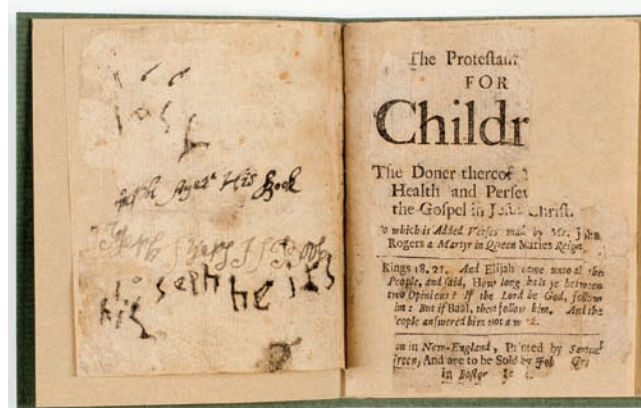 Jos
Joseph Ayers His Book
Joseph
Joseph he his
his
The Proteſtan
FOR
Childr
The Doner thereof
Health and Perſev
the Goſpel in Jeſus Chriſt.
o which is Added Verſes made by Mr. John
Rogers a Martyr in Queen Maries Reign.
Kings 18. 21. And Elijah came unto al the
People, and ſaid, How long halt ye between
two Opinions? If the Lord be God, follow
him: But if Baal, then follow him. And the
eople anſwered him not a w
on in New-England, Printed by Samuel
Green, And are to be Sold by Job Gri
in Boſton